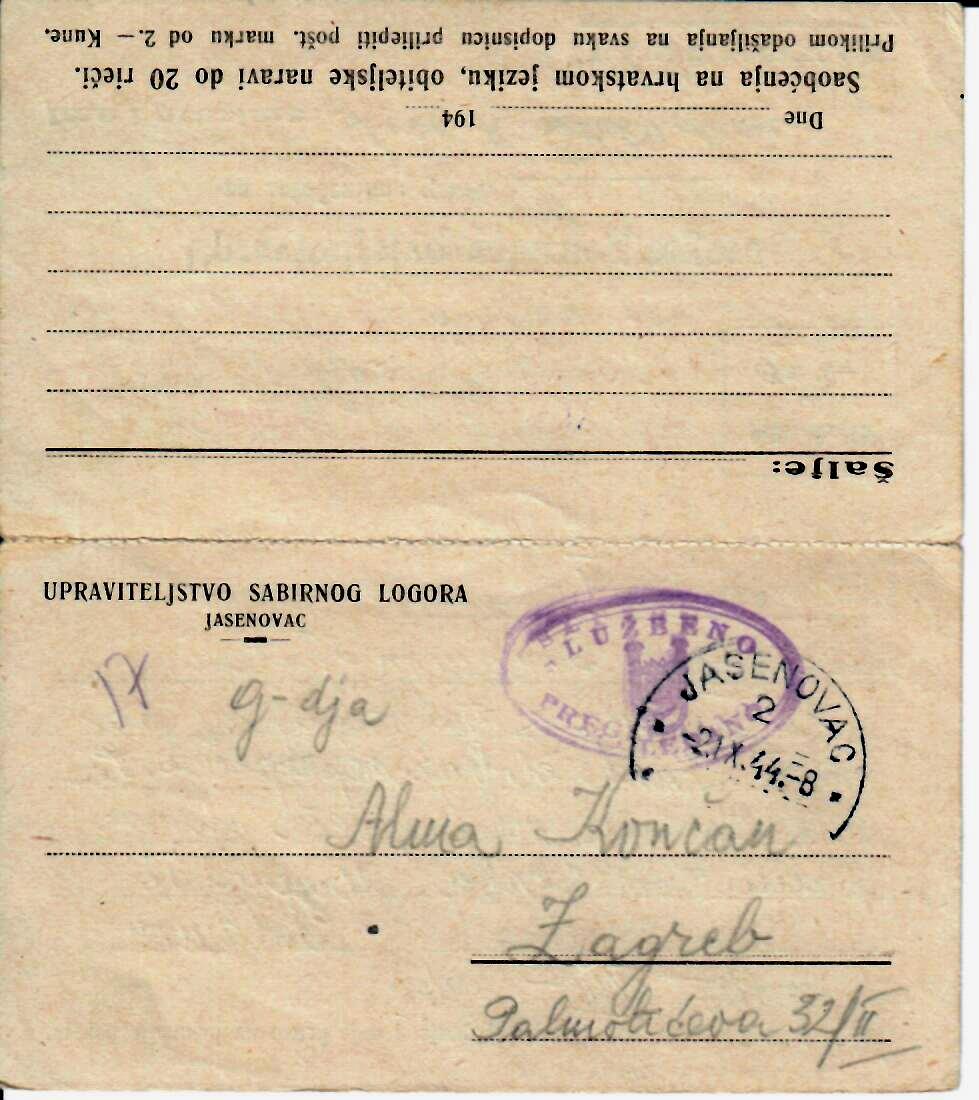 Prilikom odašiljanja na svaku dopisnicu priliepiti pošt. marku od 2.— Kune.
Saobćenja na hrvatskom jeziku, obiteljske naravi do 20 rieči.
Dne 194
Šalje:
UPRAVITELJSTVO SABIRNOG LOGORA
JASENOVAC
17
SLUŽBENO
PREGLEDANO
JASENOVAC
2
-2.IX.44.-8
g-dja
Alma Končan
Zagreb
Palmotićeva 32/II